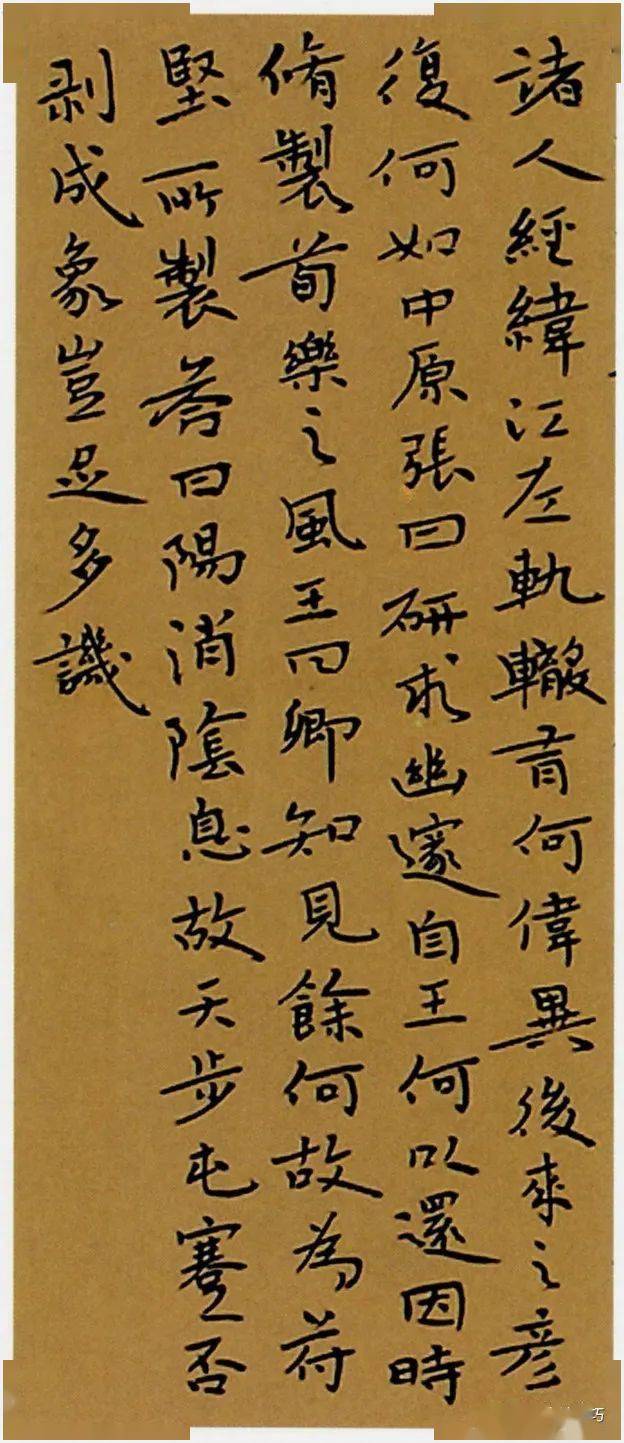 諸人經緯江左軌轍有何偉異後來之彦
復何如中原張曰研求幽邃自王何以還因時
脩製荀樂之風王曰卿知見餘何故為苻
堅所製荅曰陽消陰息故天步屯蹇否
剥成象豈足多譏
巧